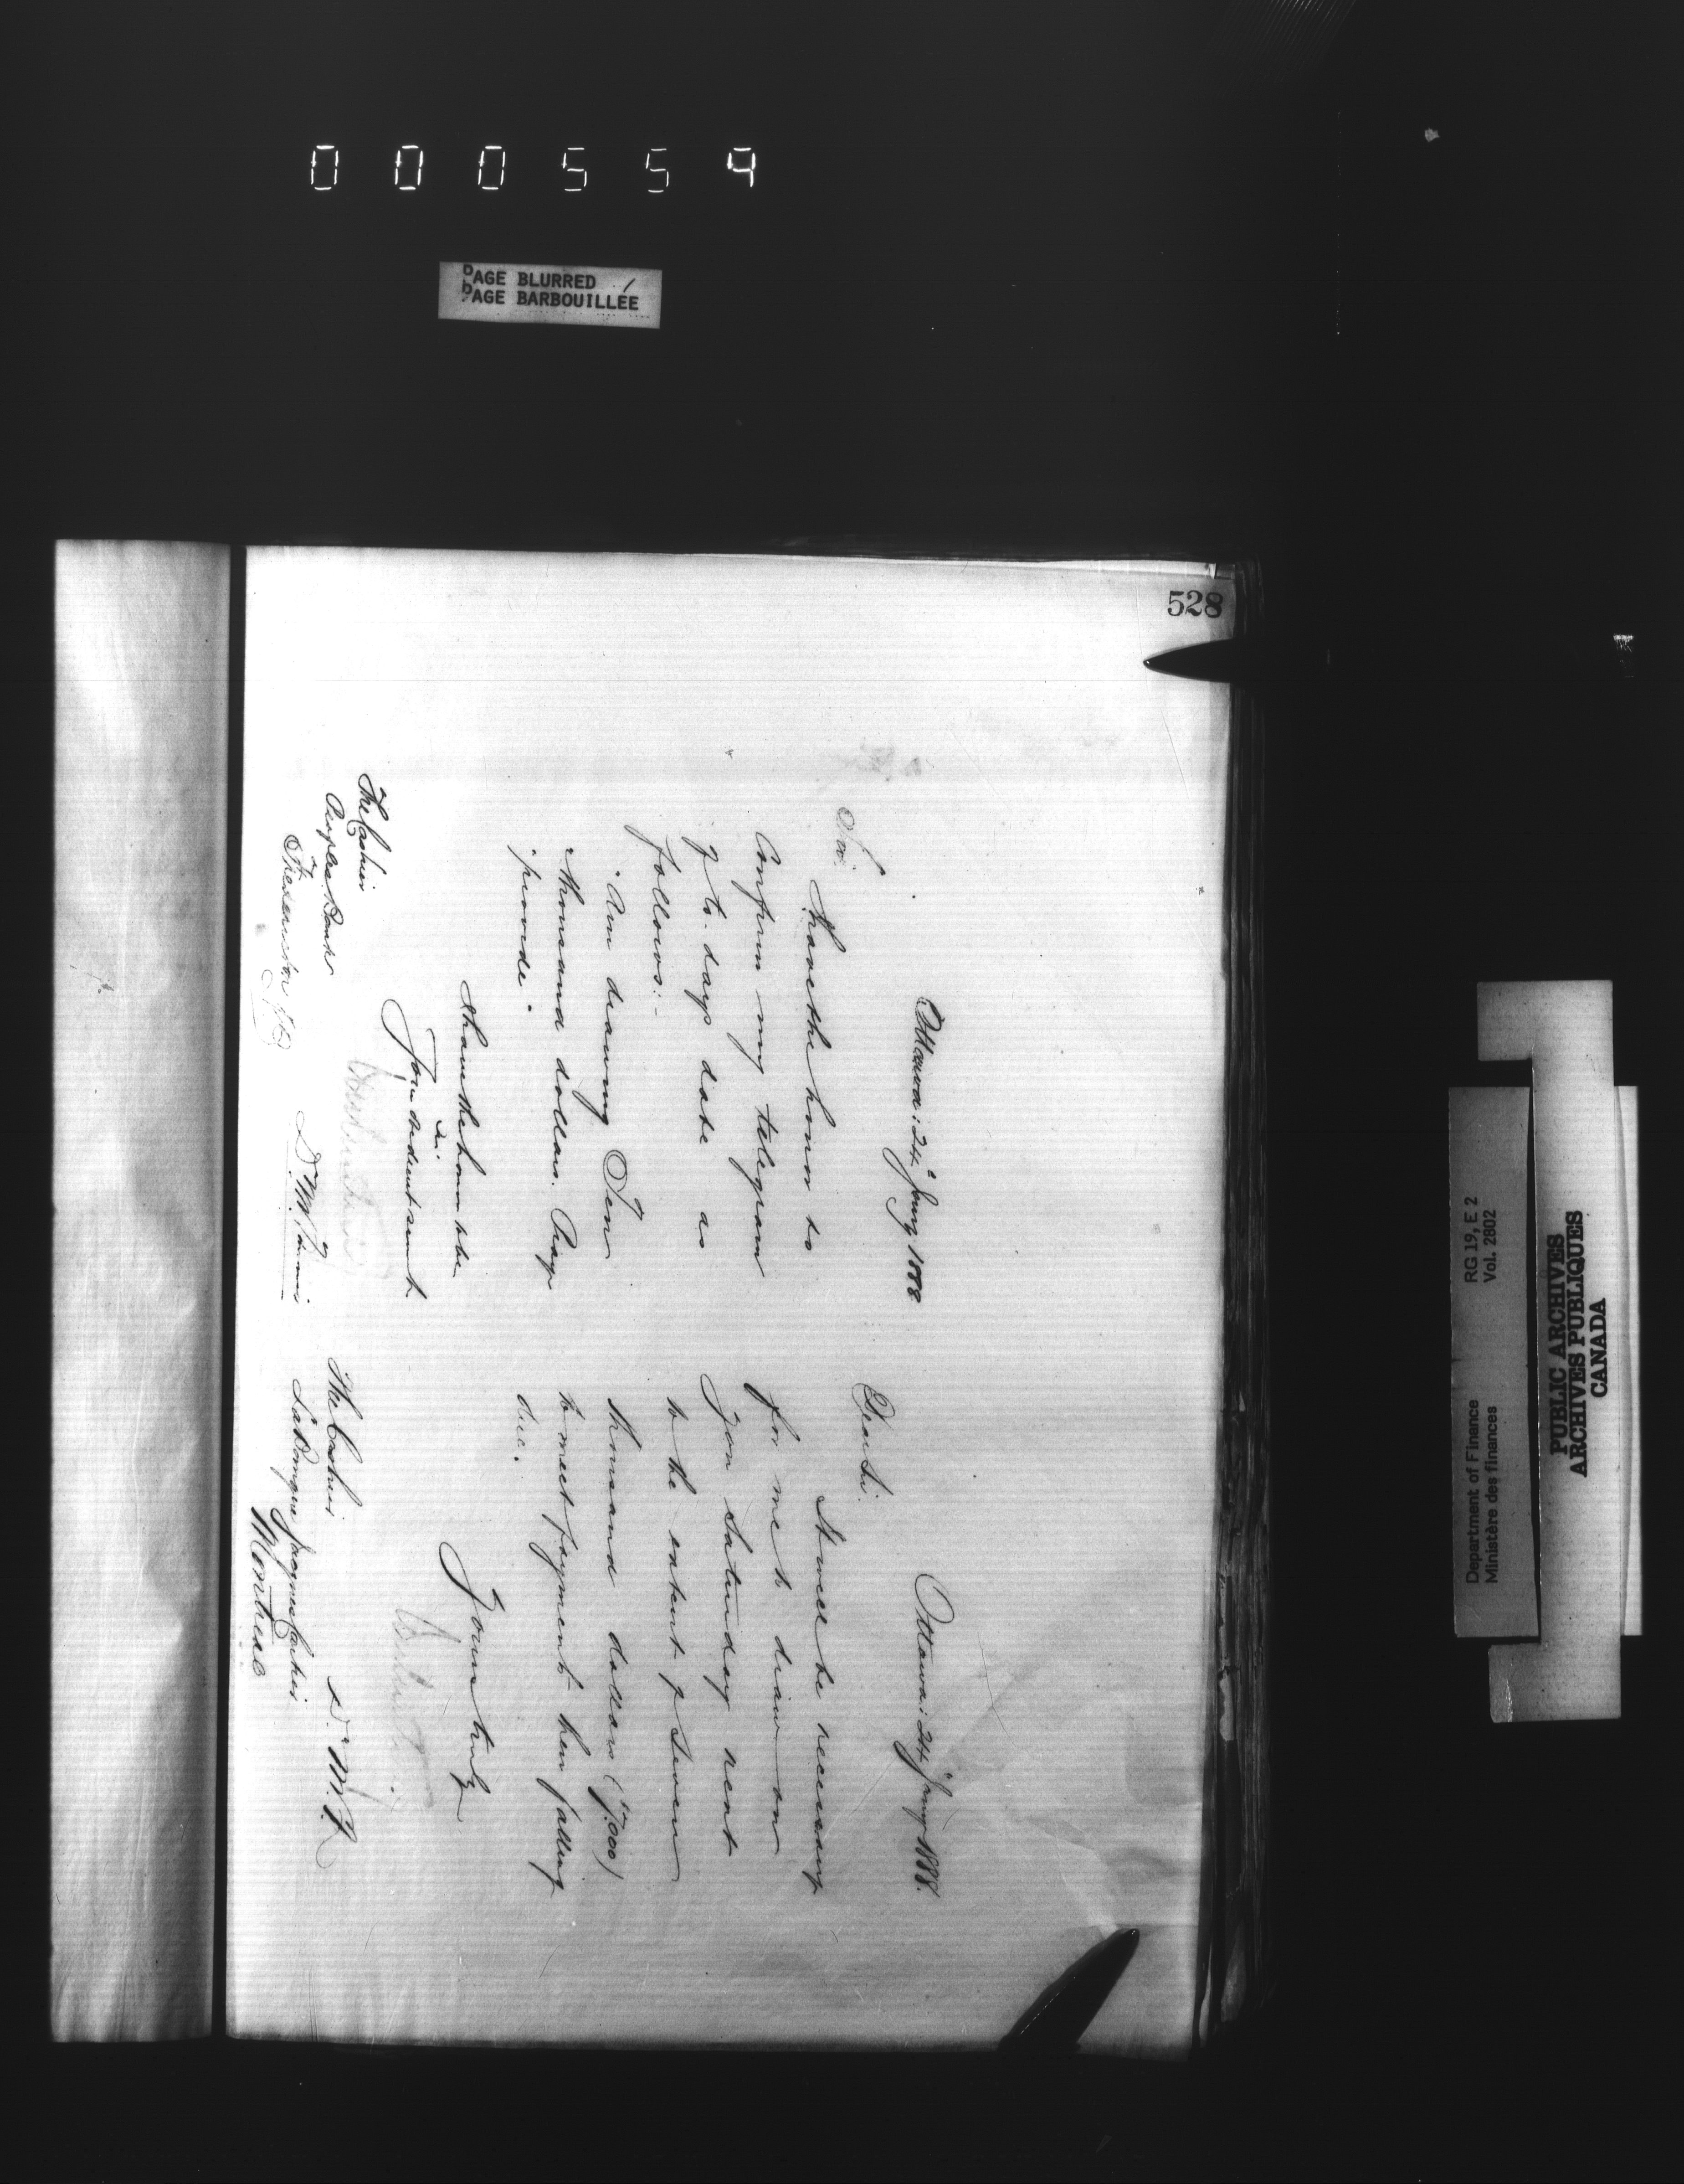 000559
PAGE BLURRED
PAGE BARBOUILLÉE
528
Ottawa: 24 " Jany 1888
Sir.
I have the honor to
Confirm my telegram
of to-days date as
follows:-
"Am drawing Ten
"thousand dollars. Pray
"provide"
I have the honor to be
Sir
Your obedient servant
D. M. F.
The Cashier
Peoples Bank
Fredericton N.B
Ottawa: 24 " Jany 1888.
Dear Sir.
It will be necessary
for me to draw on
you Saturday next
to the extent of Seven
thousand dollars ($7.000)
to meet payments then falling
due.
Yours truly
D. M. F.
The Cashier
La Banque Jacques Cartier
Montreal
Department of Finance RG 19, E 2
Ministère des finances Vol. 2802
PUBLIC ARCHIVES
ARCHIVES PUBLIQUES
CANADA